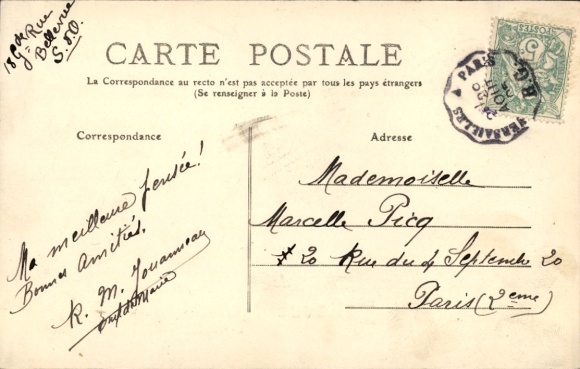 18 Gde Rue
Bellevue
S. & O.
CARTE POSTALE
La Correspondance au recto n'est pas acceptée par tous les pays étrangers
(Se renseigner à la Poste)
Correspondance
Adresse
Ma meilleure pensée!
Bonnes amitiés.
R. M. Jouanneau
Mademoiselle
Marcelle Picq
20 Rue du 4 Septembre 20
Paris (2eme)
VERSAILLES A PARIS
R.G.
AOUT
5c